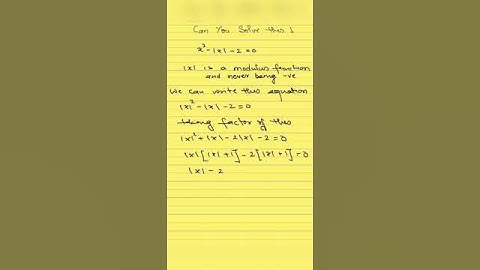 Can You Solve this 1
x² - |x| - 2 = 0
|x| is a modulus function
and never being -ve
We can write this equation
|x|² - |x| - 2 = 0
taking factor of this
|x|² + |x| - 2|x| - 2 = 0
|x| [|x| + 1] - 2 [|x| + 1] = 0
|x| - 2